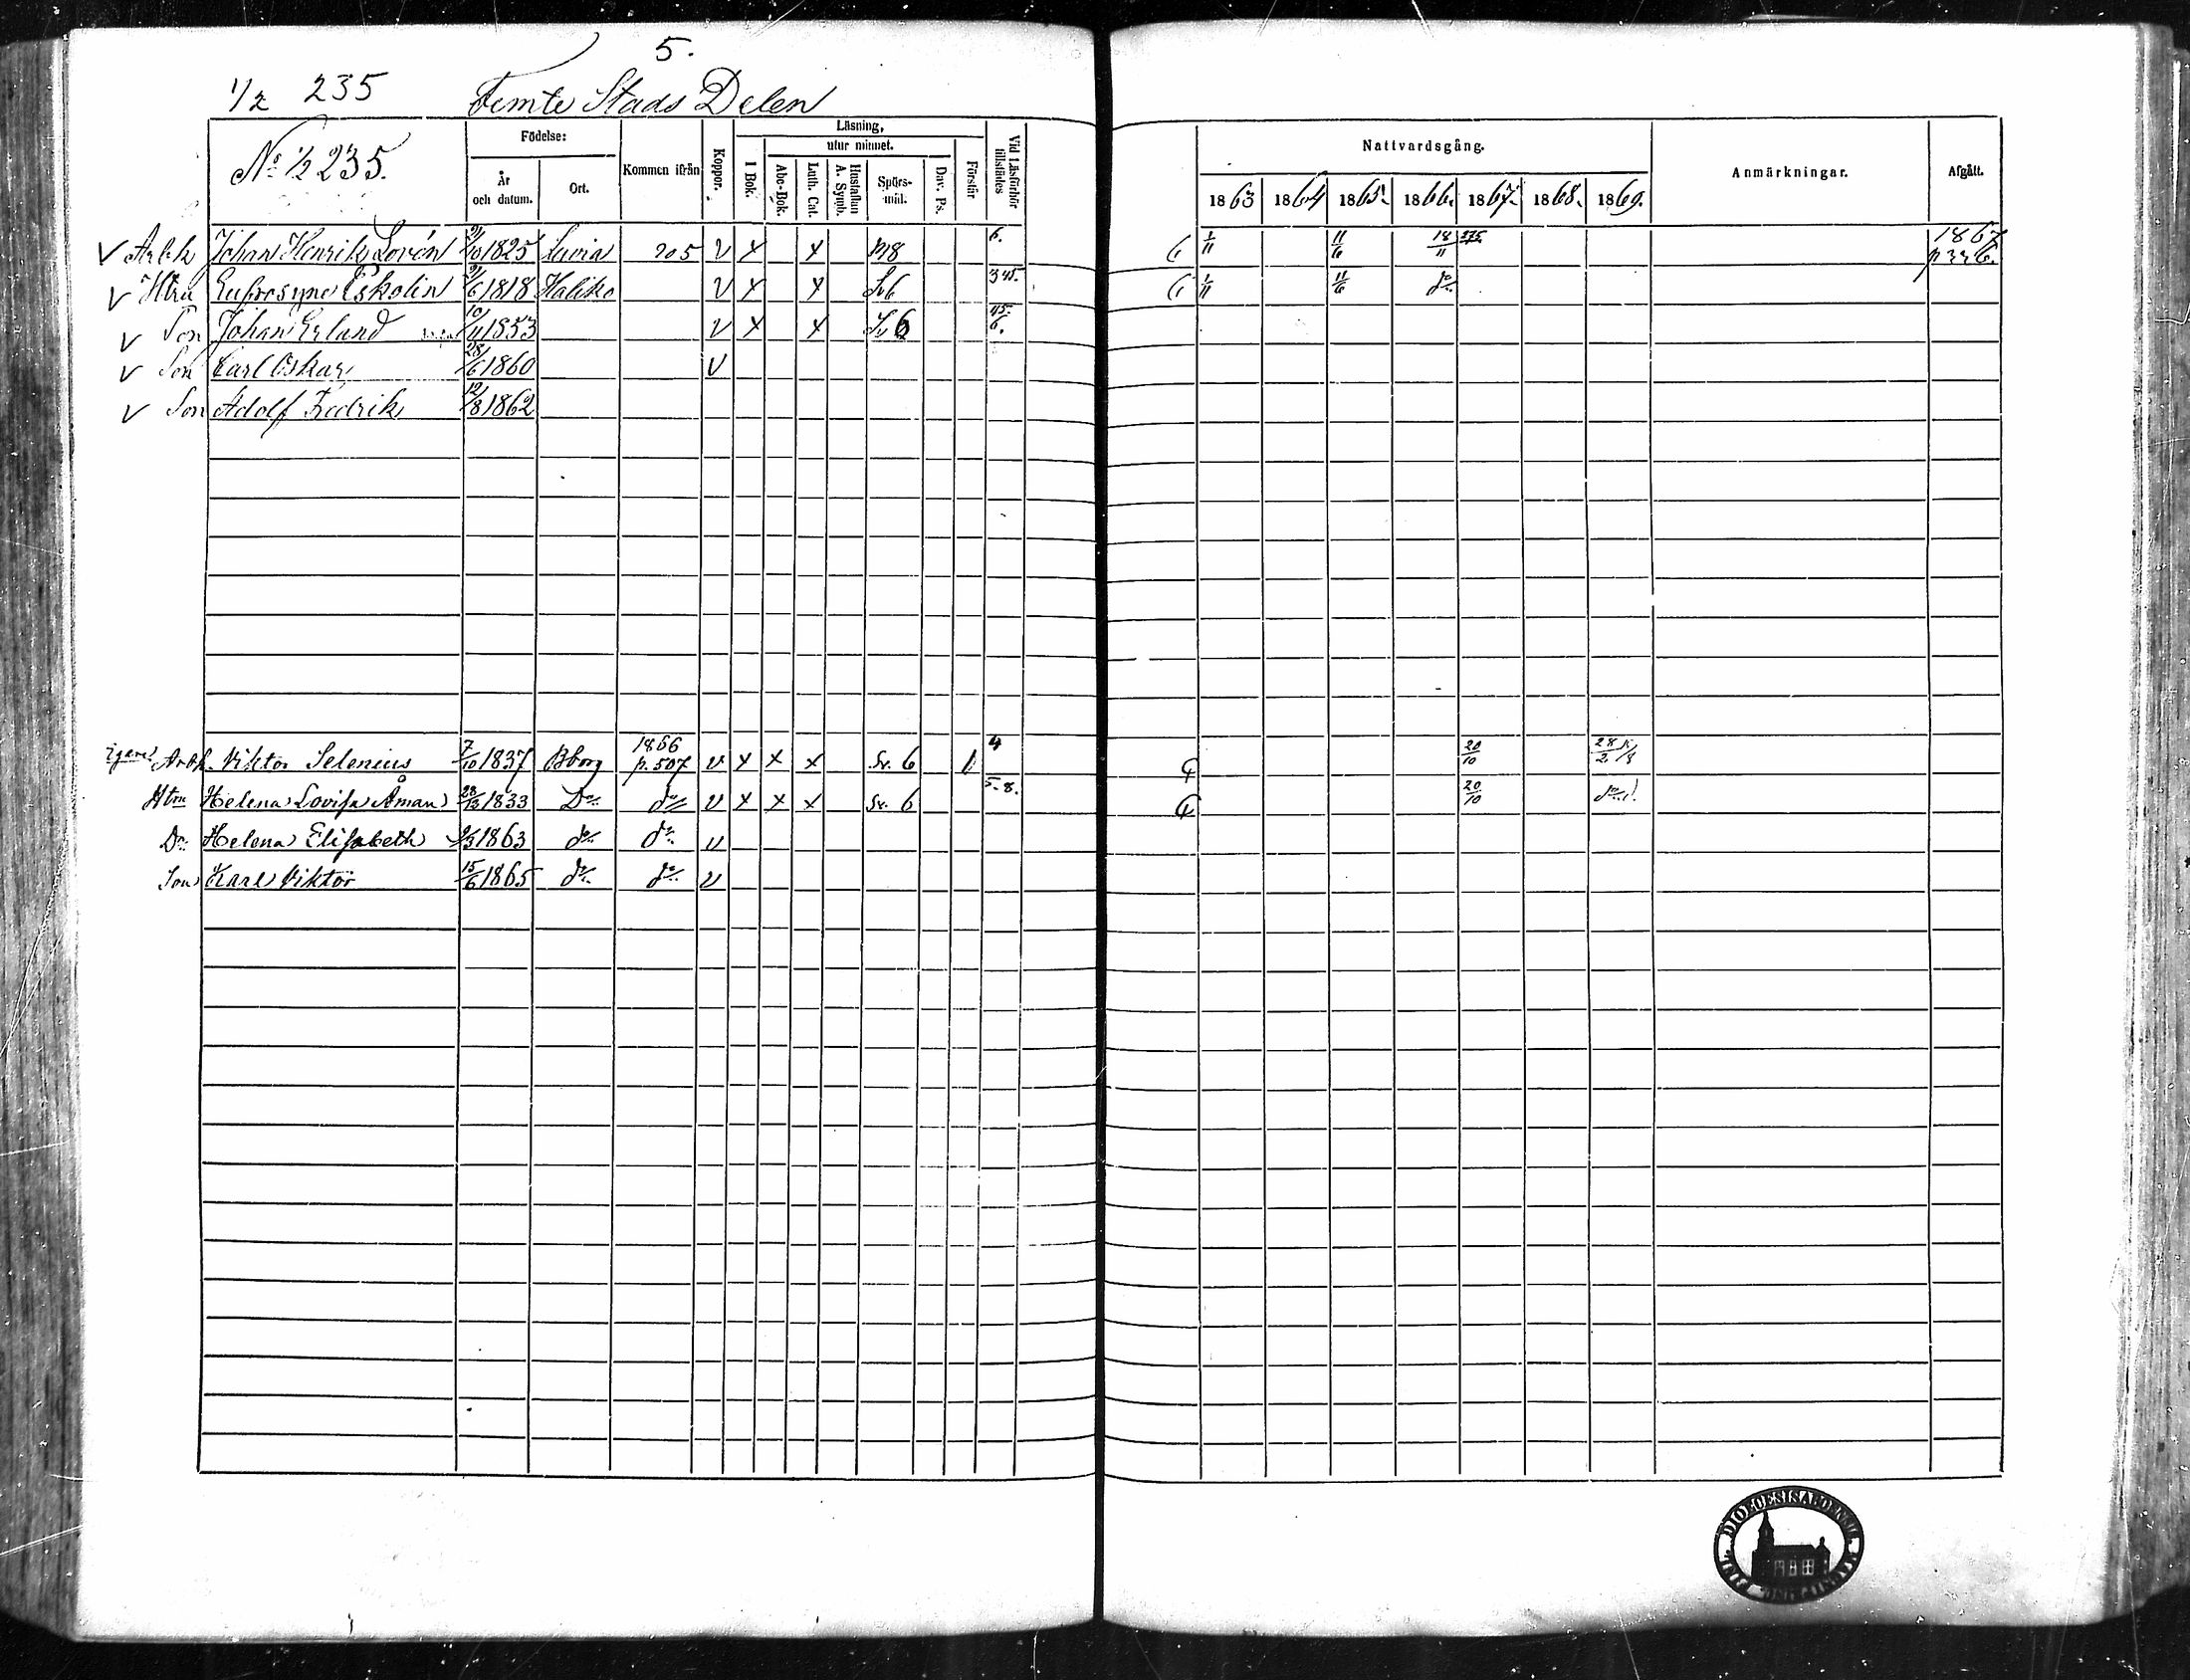 5.
1/2 235 Femte Stads Delen
No 1/2 235.
Födelse:
År och datum.
Ort.
Kommen ifrån
Koppor.
Läsning,
I Bok.
utur minnet.
Abc-Bok.
Luth. Cat.
Hustaflan A. Symb.
Spörsmål.
Dav. Ps.
Förstår
Vid Läsförhör tillstädes
Nattvardsgång.
1863 1864 1865. 1866. 1867. 1868. 1869.
Anmärkningar.
Afgått.
v Arbk Johan Henrik Lovén 21/10 1825 Lavia 205 v x x m8 6. 1/11 11/6 18/11 1867 p 336.
v Htru Eufrosyne Eskolin 21/6 1818 Haliko v x x Sv 6 345. 1/11 11/6 do
v Son Johan Erland 10/11 1853 v x x Sv 6 45. 6.
v Son Carl Oskar 28/6 1860 v
v Son Adolf Fredrik 12/8 1862
Arbk. Viktor Selenius 7/10 1837 Bborg 1866 p. 507 v x x x Sv. 6 1 4 20/10 28/2
Htru Helena Lovisa Åman 28/12 1833 Do do v x x x Sv. 6 5-8. 20/10 do
Dr Helena Elisabeth 1863 do do v
Son Karl Viktor 15/6 1865 do do v